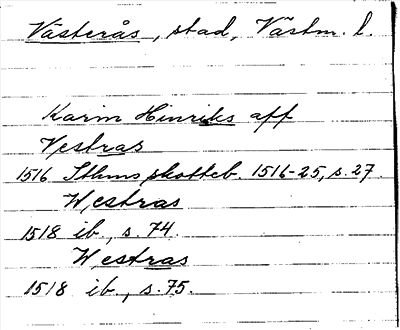 Västerås, stad, Västm. l.
Karin Hinriks aff
Vestras
1516 Sthms skotteb. 1516-25, s. 27.
Westras
1518 ib., s. 74.
Westras
1518 ib., s. 75.